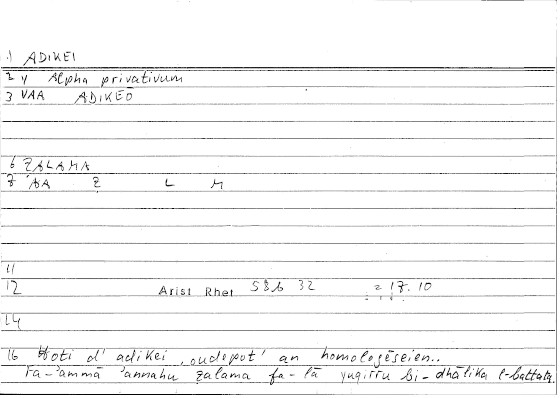 1 ADIKEI
2 y Alpha privativum
3 VAA ADIKEŌ
6 ẒALAMA
8 'AA Ẓ L M
11
12 Arist Rhet 58b 32 = 17.10
14
16 Hoti d' adikei, oudepot' an homologēseien..
Fa-'ammā 'annahu ẓalama fa-lā yuqirru bi-dhālika l-battata.